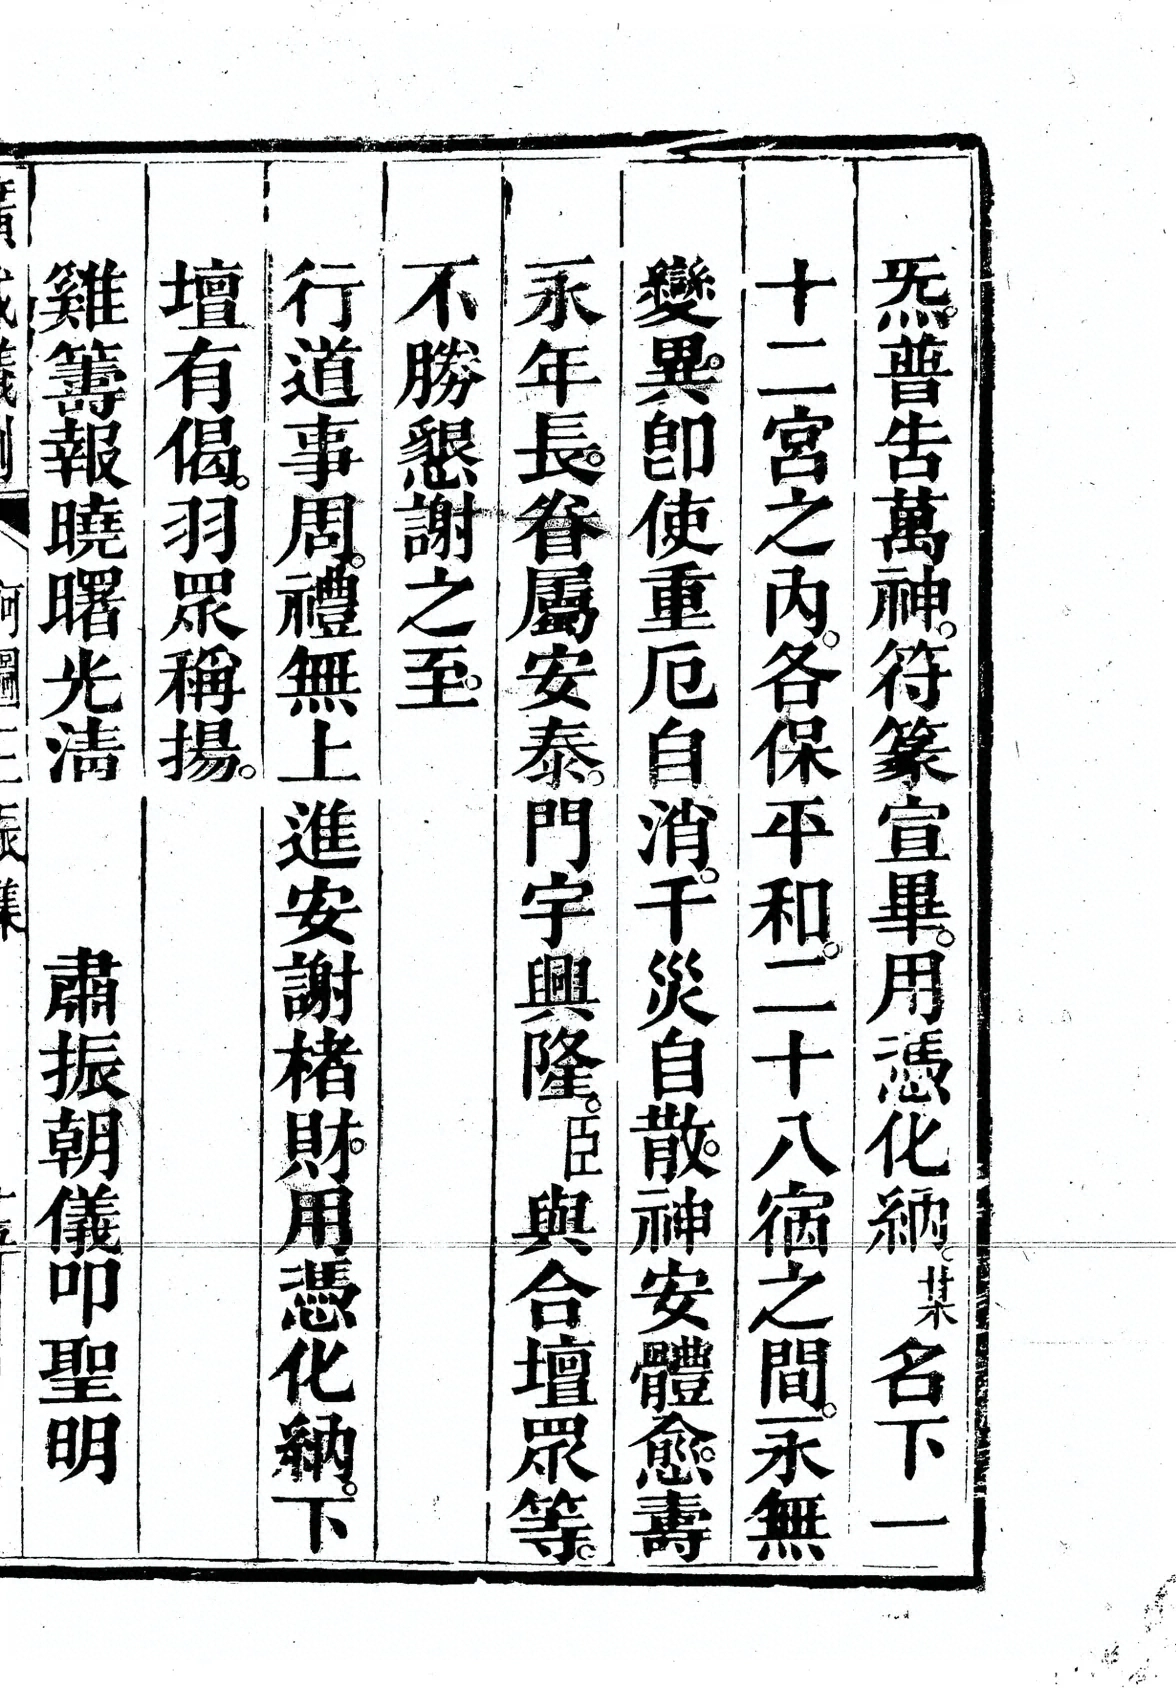 炁。普告萬神。符篆宣畢。用憑化納。某名下一
十二宮之內。各保平和。二十八宿之間。永無
變異。卽使重厄自消。千災自散。神安體愈。壽
永年長。眷屬安泰。門宇興隆。臣與合壇眾等。
不勝懇謝之至。
行道事周。禮無上進安謝楮財。用憑化納。下
壇有偈。羽眾稱揚。
雞籌報曉曙光淸　肅振朝儀叩聖明